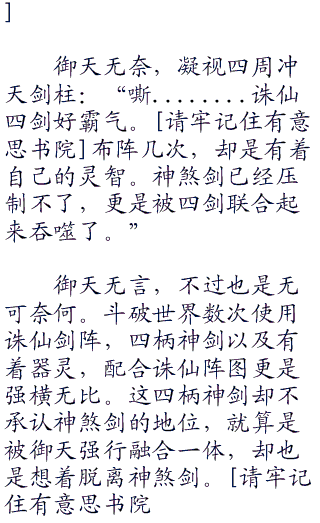 ]
御天无奈，凝视四周冲
天剑柱：“嘶........诛仙
四剑好霸气。[请牢记住有意
思书院]布阵几次，却是有着
自己的灵智。神煞剑已经压
制不了，更是被四剑联合起
来吞噬了。”
御天无言，不过也是无
可奈何。斗破世界数次使用
诛仙剑阵，四柄神剑以及有
着器灵，配合诛仙阵图更是
强横无比。这四柄神剑却不
承认神煞剑的地位，就算是
被御天强行融合一体，却也
是想着脱离神煞剑。[请牢记
住有意思书院